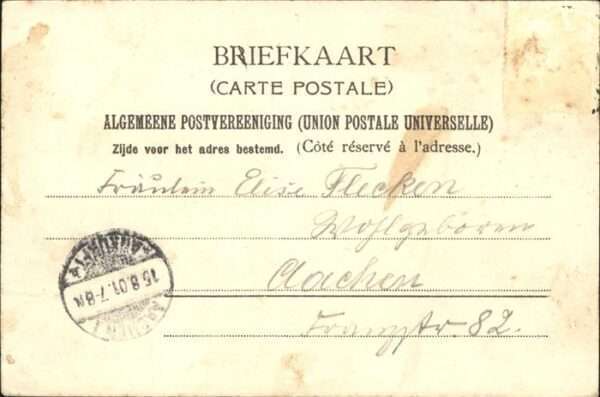 BRIEFKAART
(CARTE POSTALE)
ALGEMEENE POSTVEREENIGING (UNION POSTALE UNIVERSELLE)
Zijde voor het adres bestemd. (Côté réservé à l'adresse.)
Fräulein Elise Flecken
Wohlgeboren
Aachen
Franzstr. 82.
15.8.01.7-8N.